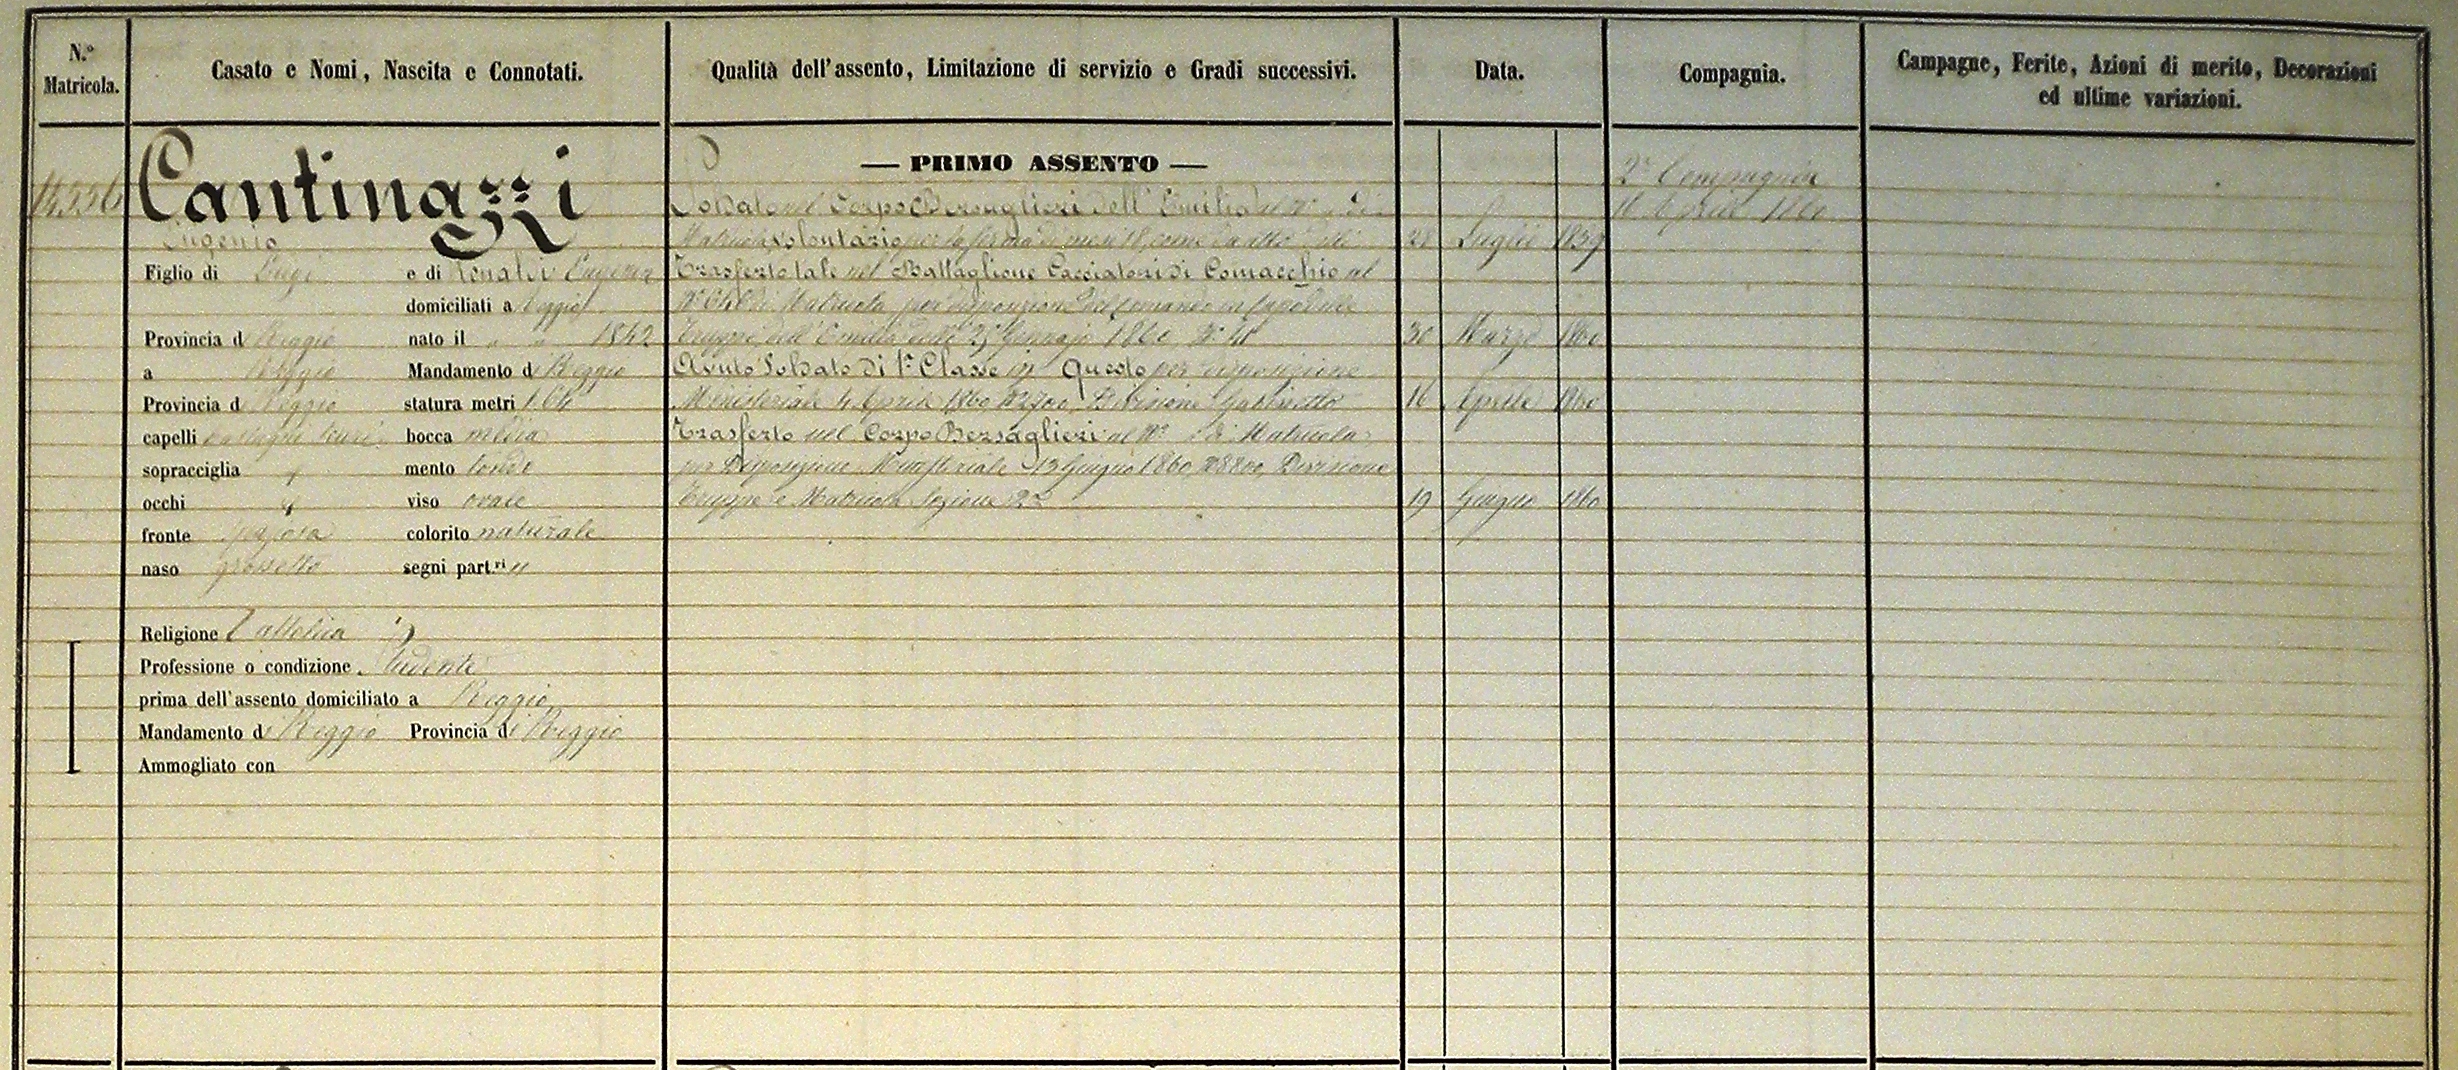 N.º Matricola.
Casato e Nomi, Nascita e Connotati.
Qualità dell'assento, Limitazione di servizio e Gradi successivi.
Data.
Compagnia.
Campagne, Ferite, Azioni di merito, Decorazioni
ed ultime variazioni.
14556
Cantinazzi
Eugenio
Figlio di Luigi e di Eugenia
domiciliati a Reggio
Provincia di Reggio nato il " " 1842
a Reggio Mandamento di Reggio
Provincia di Reggio statura metri 1.64
capelli castagni scuri bocca media
sopracciglia mento tondo
occhi viso ovale
fronte spaziosa colorito naturale
naso grossetto segni part.ri "
Religione Cattolica
Professione o condizione Studente
prima dell'assento domiciliato a Reggio
Mandamento di Reggio Provincia di Reggio
Ammogliato con
— PRIMO ASSENTO —
Soldato nel Corpo Bersaglieri dell'Emilia al Nº " di
Matricola volontario per la ferma di mesi 18, come da atto 28 Luglio 1859
Trasferto tale nel Battaglione Cacciatori di Comacchio al
di Matricola per disposizione del Comando in Capo delle
Truppe dell'Emilia delli 25 Gennajo 1860 30 Marzo 1860
Avuto Soldato di 1ª Classe in Questo per disposizione
Ministeriale 4 Aprile 1860 Nº 2700, Divisione Gabinetto 16 Aprile 1860
Trasferto nel Corpo Bersaglieri al Nº " di Matricola
per Disposizione Ministeriale 13 Giugno 1860, Nº 8800, Divisione
Truppe e Matricola Sezione 2ª 19 Giugno 1860
2ª Compagnia
16 Aprile 1860